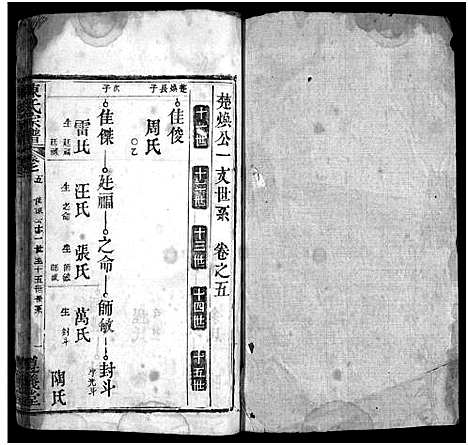 楚煥公一支世系 卷之五
十一世 十二世 十三世 十四世 十五世
楚煥長子
佳俊
周氏
次子
佳傑 廷福 之命 師敏 封斗
雷氏 生廷福 汪氏 生之命 張氏 生師敏 萬氏 生封斗
陶氏
陳氏宗譜 卷之五